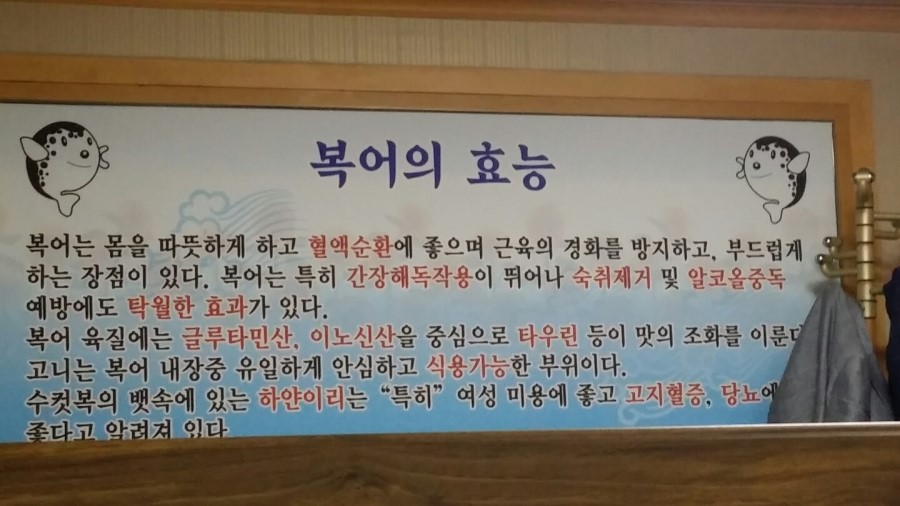 복어의 효능
복어는 몸을 따뜻하게 하고 혈액순환에 좋으며 근육의 경화를 방지하고, 부드럽게
하는 장점이 있다. 복어는 특히 간장해독작용이 뛰어나 숙취제거 및 알코올중독
예방에도 탁월한 효과가 있다.
복어 육질에는 글루타민산, 이노신산을 중심으로 타우린 등이 맛의 조화를 이룬다
고니는 복어 내장중 유일하게 안심하고 식용가능한 부위이다.
수컷복의 뱃속에 있는 하얀이리는 “특히” 여성 미용에 좋고 고지혈증, 당뇨에
좋다고 알려져 있다